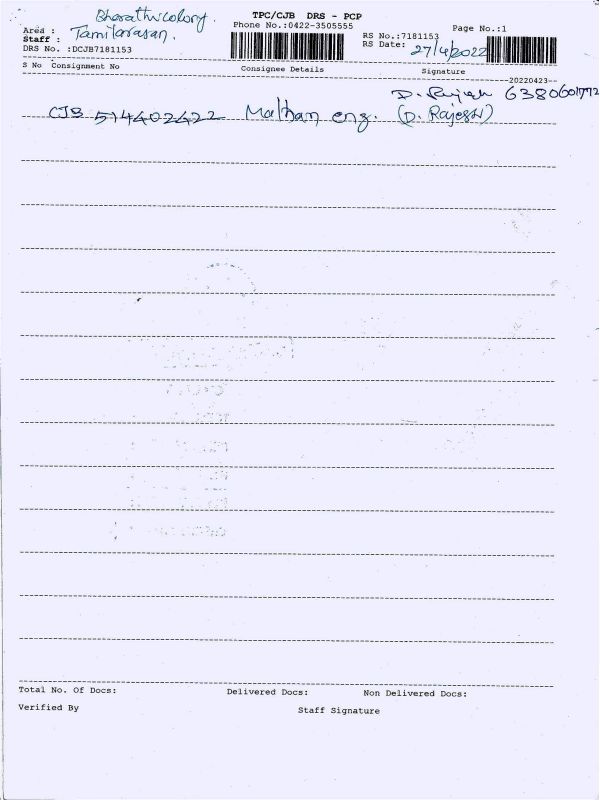 Bharathi colony.
TPC/CJB DRS - PCP
Area :
Phone No.:0422-3505555
Page No.:1
Staff : Tamilarasan.
RS No.:7181153
DRS No. :DCJB7181153
RS Date: 27/4/2022
S No Consignment No Consignee Details Signature
20220423
D. Rajesh 6380601772
CJB 514402422 Malhan eng. (D. Rajesh)
Total No. Of Docs: Delivered Docs: Non Delivered Docs:
Verified By Staff Signature